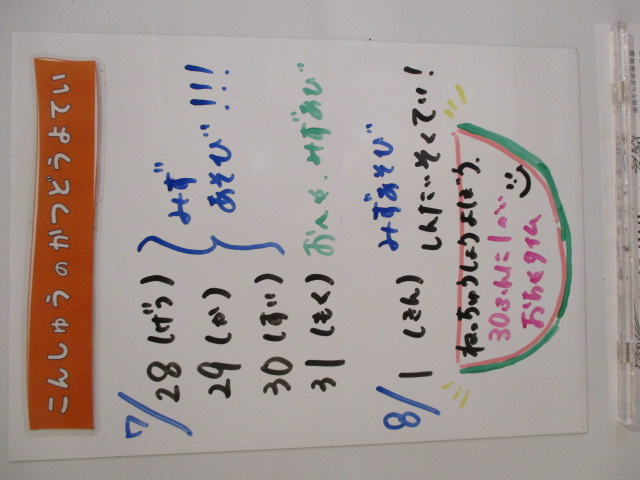 こんしゅうのかつどうよてい
7/28(げつ)
29(か)
30(すい)
みず
あそび!!!
31(もく) おへや・みずあそび
8/1(きん) みずあそび
しんたいそくてい!
ねっちゅうしょうよぼう。
30ふんに1かい
おちゃタイム